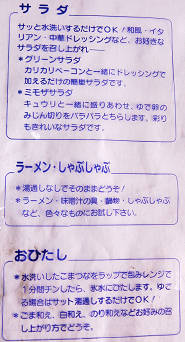 サラダ
サッと水洗いするだけでＯＫ！和風・イタ
リアン・中華ドレッシングなど、お好きな
サラダを召し上がれ——
＊グリーンサラダ
カリカリベーコンと一緒にドレッシングで
加えるだけの簡単サラダです。
＊ミモザサラダ
キュウリと一緒に盛りあわせ、ゆで卵の
みじん切りをパラパラとちらします。彩り
もきれいなサラダです。
ラーメン・しゃぶしゃぶ
＊湯通しなしでそのままどうぞ！
＊ラーメン・味噌汁の具・鍋物・しゃぶしゃぶ
など、色々なものにお試し下さい。
おひたし
＊水洗いしたこまつなをラップで包みレンジで
１分間チンしたら、氷水にひたします。ゆで
る場合はサット湯通しするだけでＯＫ！
＊ごま和え、白和え、のり和えなどお好みの召
し上がり方でどうぞ。